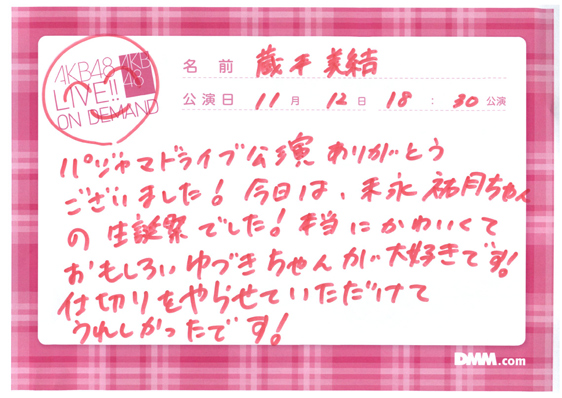 AKB48
LIVE!!
ON DEMAND
AKB
48
名前 蔵本美結
公演日 11月 12日 18:30公演
パジャマドライブ公演 ありがとう
ございました! 今日は、末永 祐月ちゃん
の 生誕祭でした! 本当にかわいくて
おもしろいゆづきちゃんが大好きです!
仕切りをやらせていただけて
うれしかったです!
DMM.com